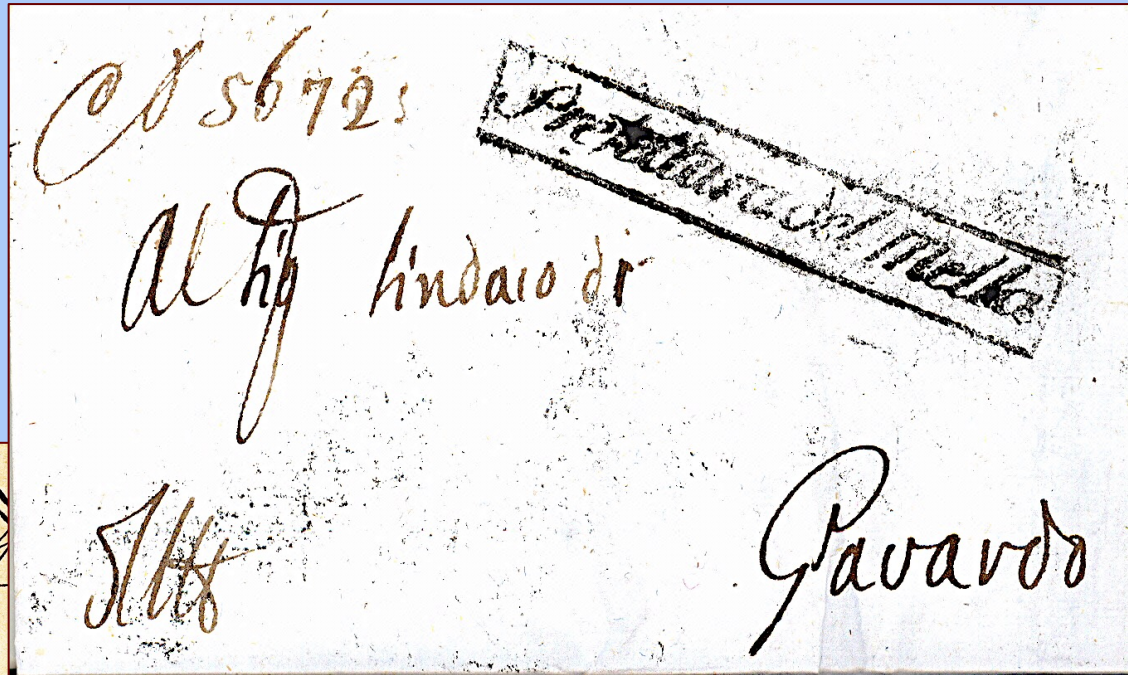 5672
Prefettura del Mella
Al Sig Sindaco di
Gavardo